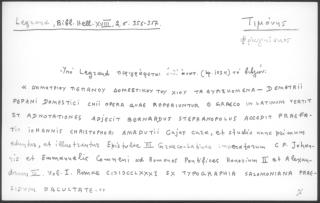 Legrand, Bibl. Hell. XVIII, 2, σ. 356-357.
Τιμόνης
Ὑπὸ Legrand περιγράφεται (ἀρ. 1034) τὸ βιβλίον:
« ΔΗΜΗΤΡΙΟΥ ΠΕΠΑΝΟΥ ΔΟΜΕΣΤΙΚΟΥ ΤΟΥ ΧΙΟΥ ΤΑ ΕΥΡΙΣΚΟΜΕΝΑ — DEMETRII
PEPANI DOMESTICI CHII OPERA QUAE REPERIUNTUR. E GRAECO IN LATINUM VERTIT
ET ADNOTATIONES ADJECIT BERNARDUS STEPHANOPOLUS ACCEDIT PRAEFA-
TIO IOHANNIS CHRISTOPHORI AMADUTII Cujus cura, et studio nunc primum
eduntur, et illustrantur Epistulae Graeco-Latinae imperatorum C.P. Johan-
nis et Emmanuelis Comneni ad Romanos Pontifices Honorium II et Alexan-
drum III. Vol. I. ROMAE CIƆIƆCCLXXXI EX TYPOGRAPHIA SALOMONIANA PRAE-
SIDUM FACULTATE.